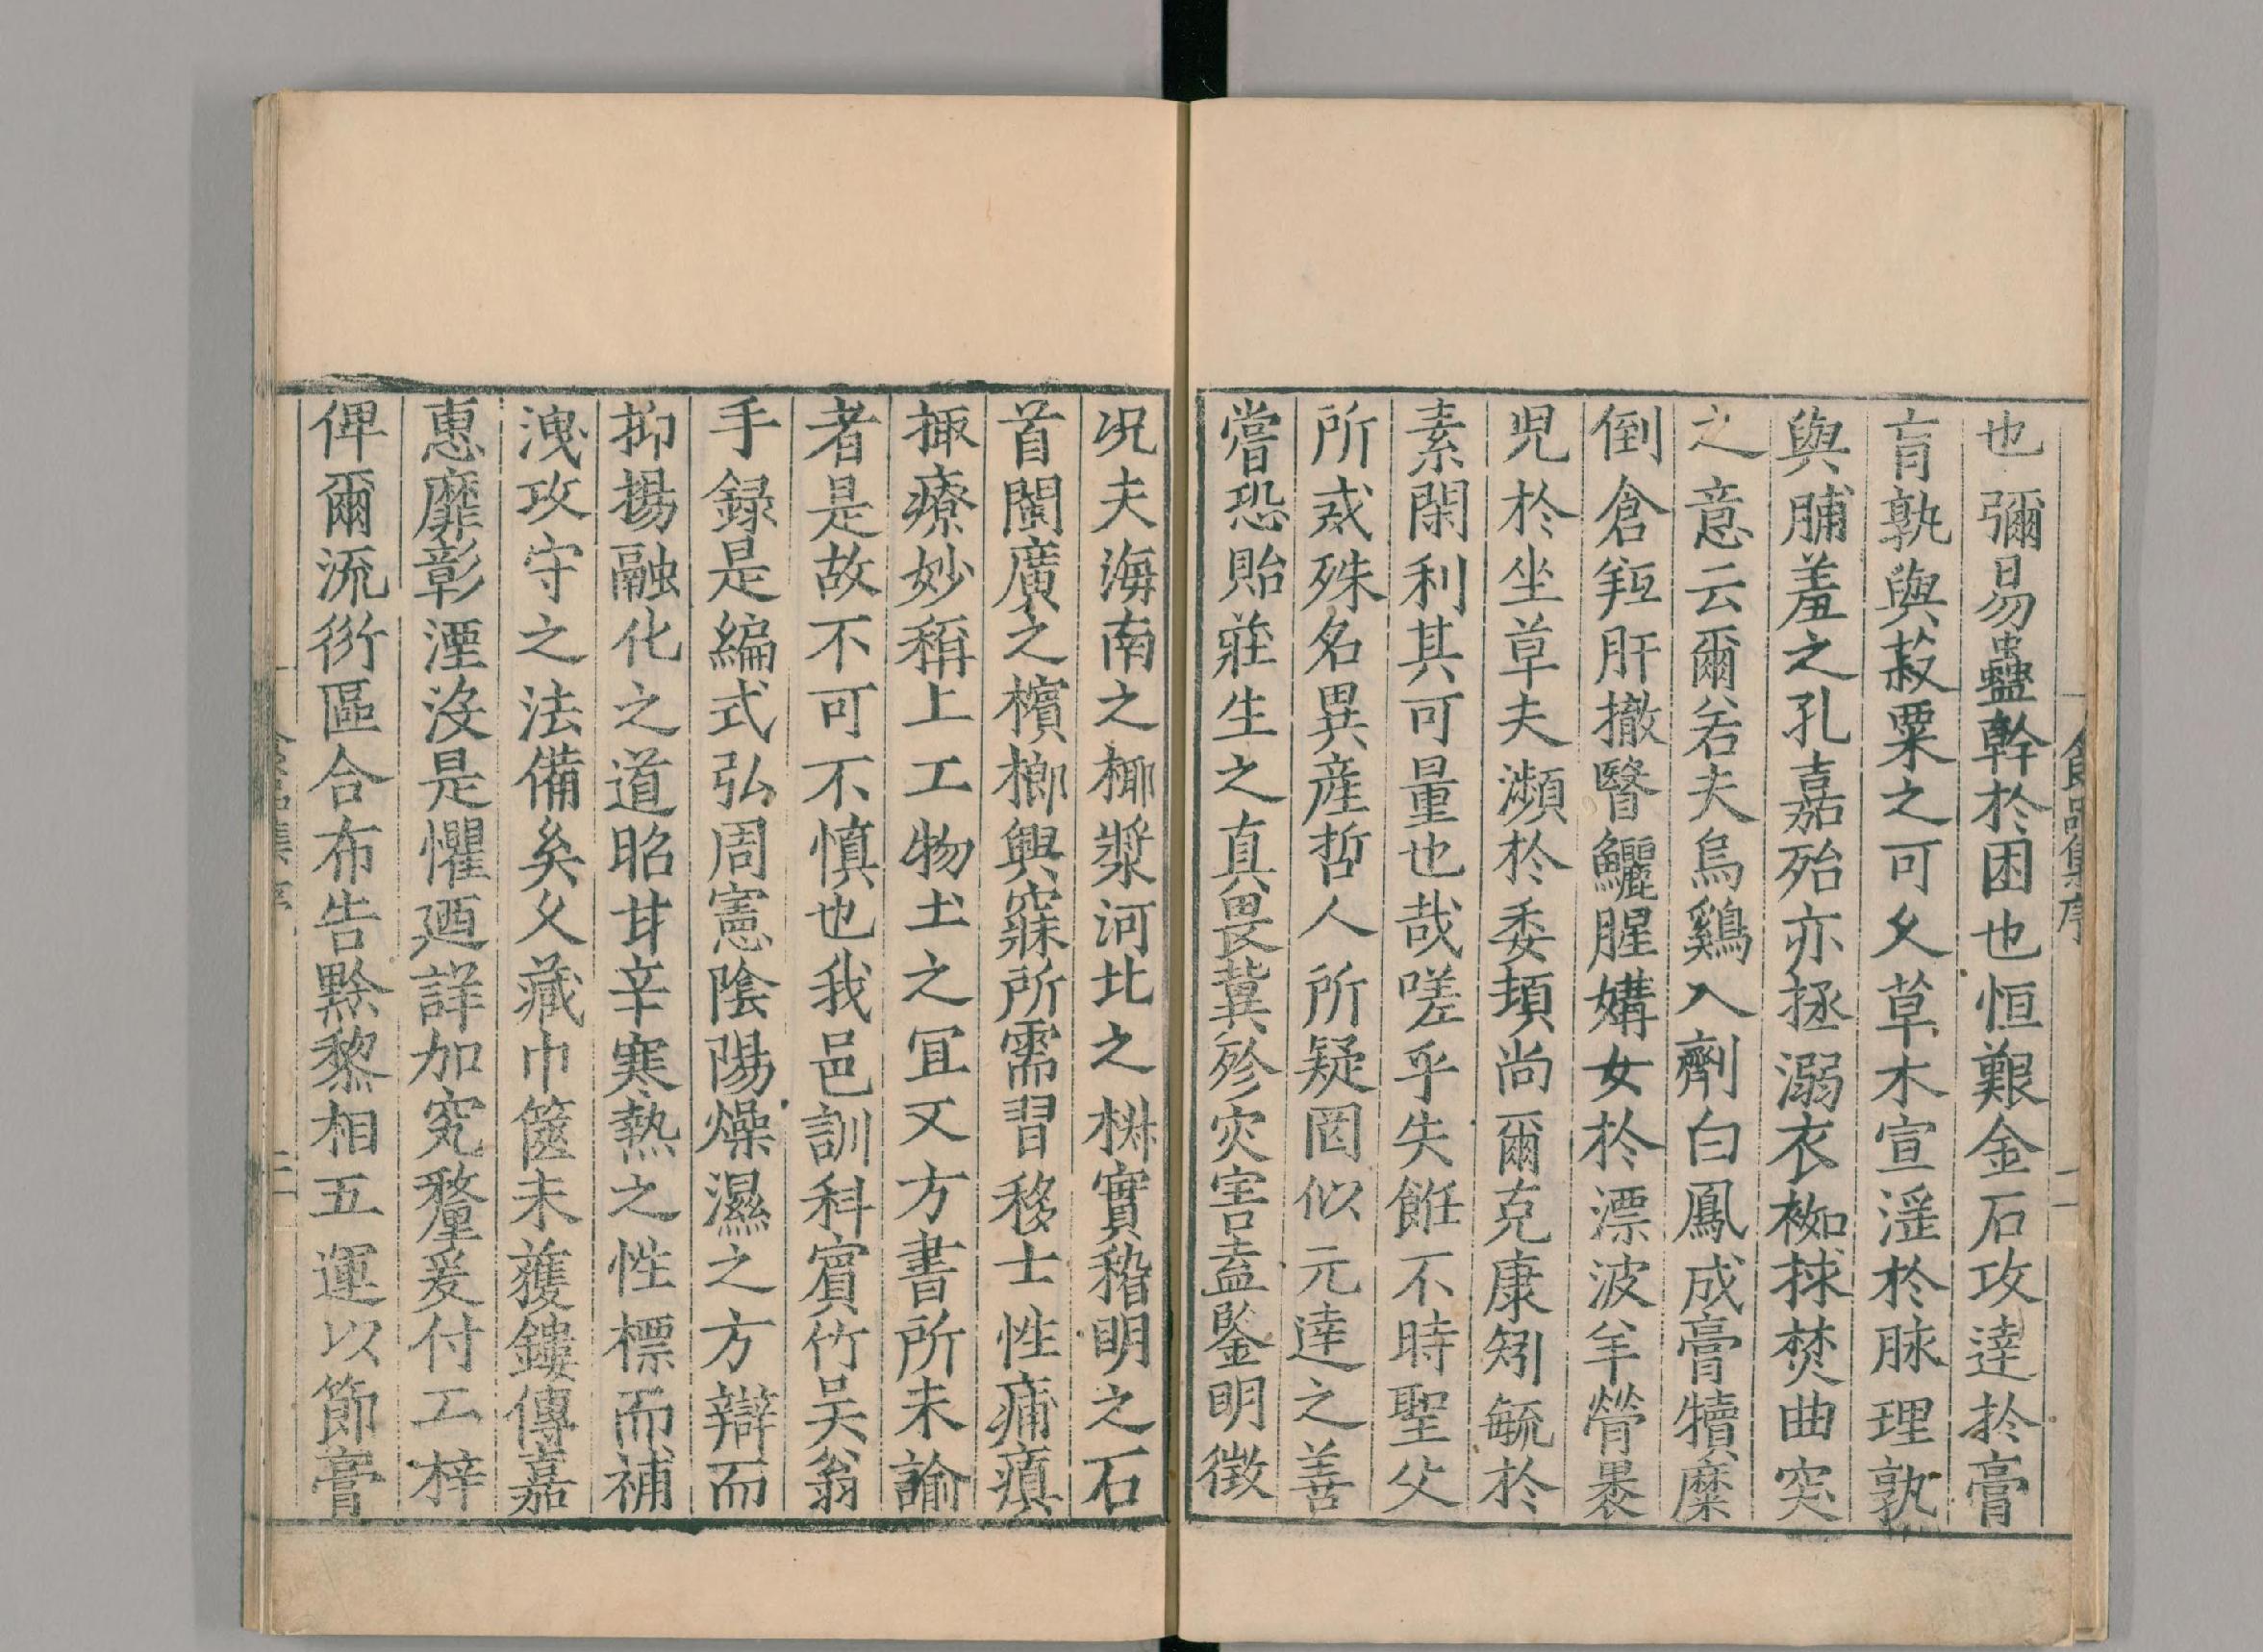 食品集序
二
也彌昜蠱幹於困也恒艱金石攻逹扵膏
肓孰與菽粟之可久草木宣滛於脉理孰
與脯羞之孔嘉殆亦拯溺衣袽捄焚曲突
之意云爾若夫烏鷄入劑白鳳成膏犢糜
倒倉羫肝撤瞖鱺腥媾女於漂波羊膋褁
兒於坐草夫瀕於委頓尚爾克康矧毓於
素閑利其可量也哉嗟乎失飪不時聖父
所戒殊名異産哲人所疑罔似元逹之善
嘗恐貽莊生之真畏冀殄灾害盍鍳明徴
况夫海南之椰漿河北之樹實稽明之石
首閩廣之檳榔興寐所需習移士性痡瘨
掫療妙稱上工物土之冝又方書所未諭
者是故不可不慎也我邑訓科賔竹吴翁
手録是編式弘周憲隂陽燥濕之方辯而
抑揚融化之道昭甘辛寒熱之性標而補
洩攻守之法備矣久藏巾篋未獲鏤傳嘉
惠靡彰湮没是懼廼詳加究釐爰付工梓
俾爾流衍區合布告黔黎相五運以節膏